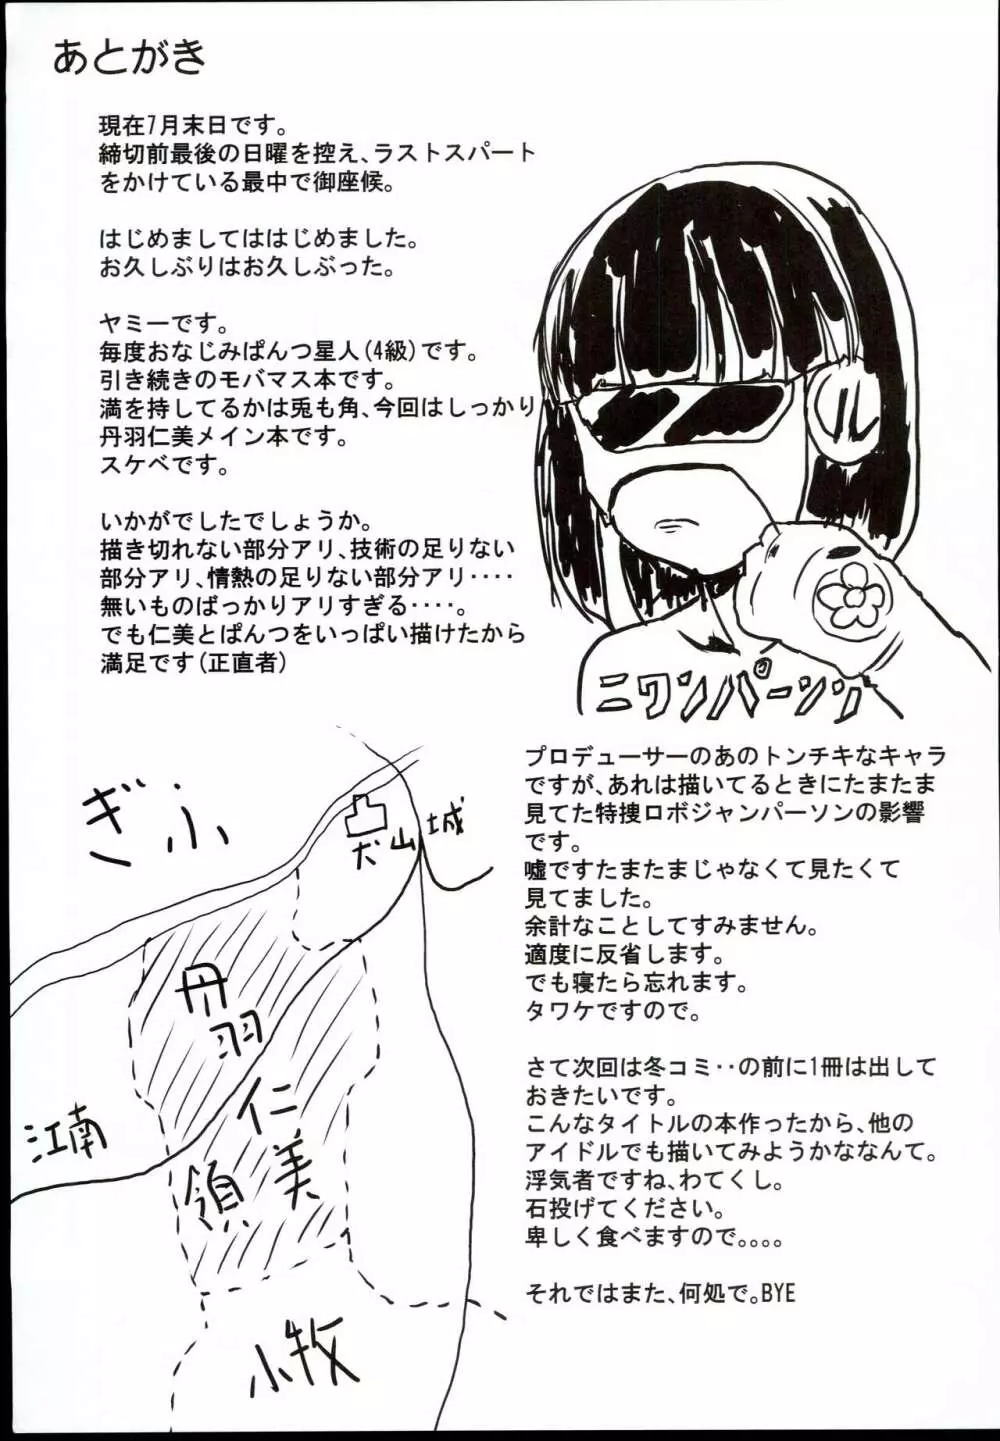 あとがき
現在7月末日です。
締切前最後の日曜を控え、ラストスパート
をかけている最中で御座候。
はじめましてははじめました。
お久しぶりはお久しぶった。
ヤミーです。
毎度おなじみぱんつ星人(4級)です。
引き続きのモバマス本です。
満を持してるかは兎も角、今回はしっかり
丹羽仁美メイン本です。
スケベです。
いかがでしたでしょうか。
描き切れない部分アリ、技術の足りない
部分アリ、情熱の足りない部分アリ‥‥
無いものばっかりアリすぎる‥‥。
でも仁美とぱんつをいっぱい描けたから
満足です(正直者)
ル
ニワンパーソン
プロデューサーのあのトンチキなキャラ
ですが、あれは描いてるときにたまたま
見てた特捜ロボジャンパーソンの影響
です。
嘘ですたまたまじゃなくて見たくて
見てました。
余計なことしてすみません。
適度に反省します。
でも寝たら忘れます。
タワケですので。
さて次回は冬コミ‥の前に1冊は出して
おきたいです。
こんなタイトルの本作ったから、他の
アイドルでも描いてみようかななんて。
浮気者ですね、わてくし。
石投げてください。
卑しく食べますので。。。。
それではまた、何処で。BYE
ぎふ
犬山城
丹羽仁美領
江南
小牧